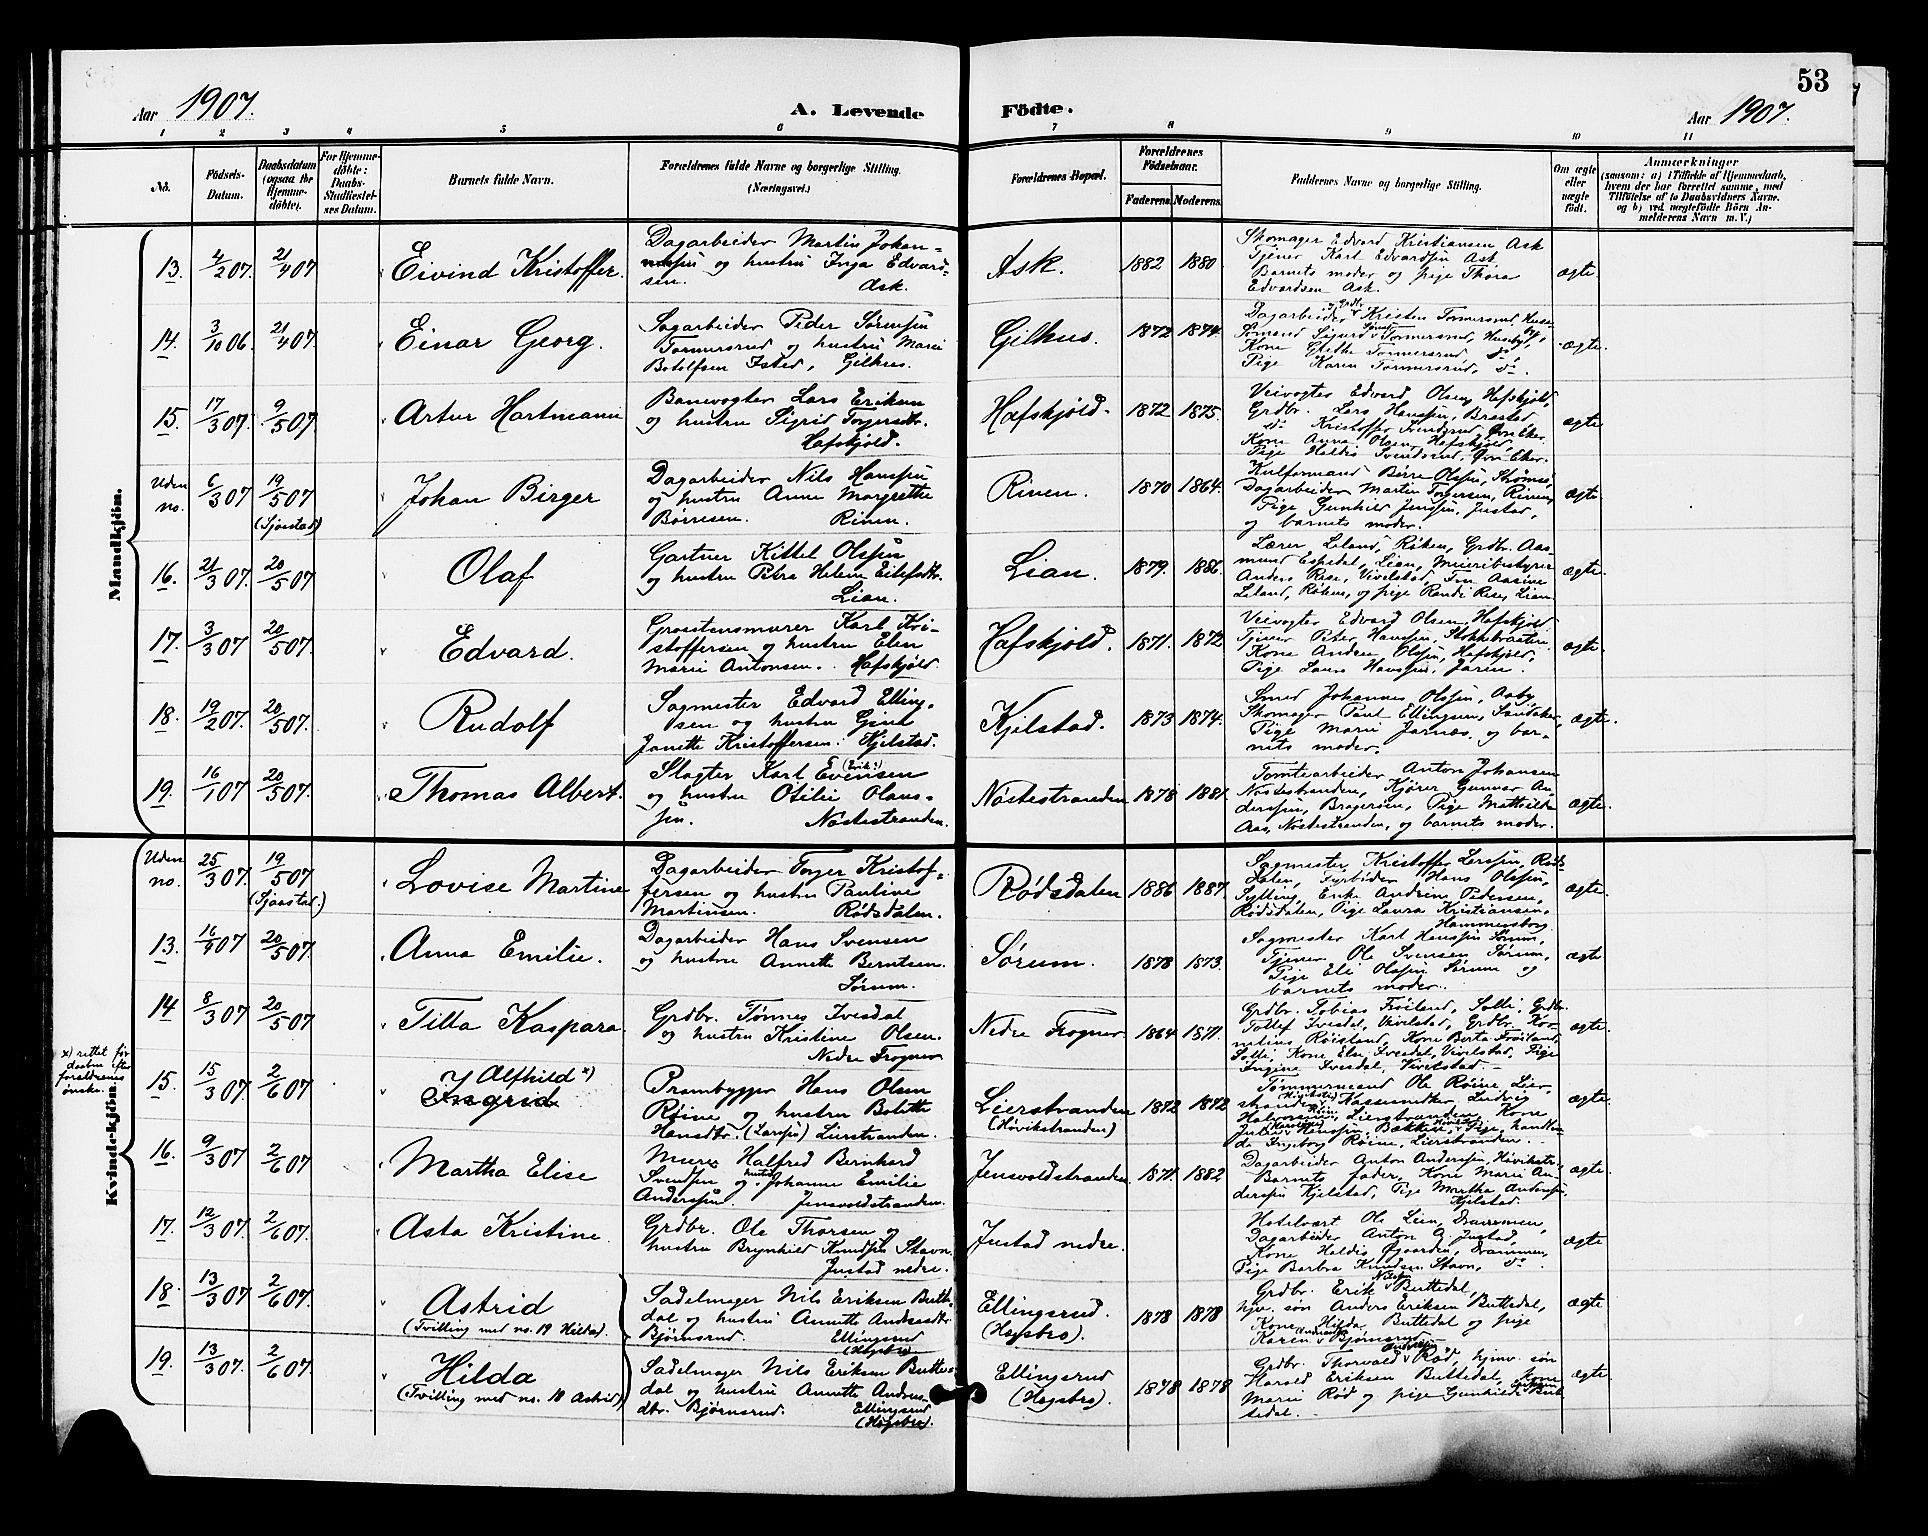 53
Aar 1907.
A. Levende Födte.
Aar 1907.
1 2 3 4 5 6 7 8 9 10 11
No.
Födsels-Datum.
Daabsdatum (ogsaa for Hjemmedöbte).
For Hjemmedöbte: Daabs-Stadfæstelses Datum.
Barnets fulde Navn.
Forældrenes fulde Navne og borgerlige Stilling. (Næringsvei.)
Forældrenes Bopæl.
Forældrenes Födselsaar.
Faderens. Moderens.
Faddernes Navne og borgerlige Stilling.
Om ægte eller uægte født.
Anmærkninger
(saasom: a) i Tilfælde af Hjemmedaab, hvem der har forrettet samme, med Tilføielse af to Daabsvidners Navne, og b) ved uægtefödte Börn Anmelderens Navn m. V.)
Mandkjön.
13. 4/2 07. 21/4 07 Eivind Kristoffer.
Dagarbeider Martin Johan-
og hustru Inga Edvard-
sen. Ask.
Ask. 1882 1880.
Skomager Edvard Kristiansen Ask
Tjener Karl Edvardsen Ask
Barnets moder og pige Thora
Edvardsen Ask.
ægte.
14. 3/10 06. 21/4 07. Einar Georg.
Sagarbeider Peder Sørensen
Tormersrud og hustru Marie
Botolfsen Isted, Gilhus.
Gilhus. 1872 1874.
Dagarbeider og Grdbr. Kristen Tormersrud Huseby,
Sømand Sigurd Tormersrud, Huseby,
Kone Grethe Tormersrud, do.
Pige Karen Tormersrud, do.
ægte.
15. 17/3 07. 9/5 07. Artur Hartmann
Banevogter Lars Eriksen
og hustru Sigrid Torgersdtr.
Hafskjold.
Hafskjold. 1872 1875.
Veivogter Edvard Olsen, Hafskjold,
Grdbr. Lars Hanssen, Brastad
do. Kristoffer Svendsrud, Øvr. Eker.
Kone Anna Olsen, Hafskjold,
Pige Haldis Svendsrud, Øvr. Eker.
ægte
Uden no. 6/3 07 19/5 07 (Sjaastad) Johan Birger
Dagarbeider Nils Hanssen
og hustru Anne Margrethe
Børresen. Rinen.
Rinen. 1870 1864.
Kulformand Børre Olsen, Strømsø,
Dagarbeider Martin Torgersen, Rinen,
Pige Gunhild Jenssen, Justad,
og barnets moder.
ægte.
16. 21/3 07. 20/5 07 Olaf
Gartner Kittel Olssen
og hustru Petra Helene Eilefsdtr.
Lian.
Lian. 1879. 1886.
Lærer Leland, Røken, Grdbr. Aas-
mund Espedal, Lian, Meieribestyrer
Anders Rese, Vivelstad, Fru Aasine
Leland, Røken, og pige Randi Rese, Lian
ægte.
17. 3/3 07 20/5 07. Edvard.
Graastensmurer Karl Kri-
stoffersen og hustru Elen
Marie Antonsen. Hafskjold.
Hafskjold. 1871. 1872
Veivogter Edvard Olsen, Hafskjold
Tjener Peter Hanssen, Stokkebraaten
Kone Andrea Olssen, Hafskjold,
Pige Laura Hanssen, Jaren.
ægte.
18. 19/2 07. 20/5 07. Rudolf
Sagmester Edvard Elling-
sen og hustru Gine
Janette Kristoffersen. Kjelstad.
Kjelstad. 1873 1874.
Smed Johannes Olssen, Aaby,
Skomager Paul Ellingsen, Sandaker,
Pige Marie Jarnæs og bar-
nets moder.
ægte.
19. 16/1 07 20/5 07. Thomas Albert.
Slagter Karl Evensen (Erik:)
og hustru Otilie Olaus-
sen. Nøstestranden.
Nøstestranden 1878 1881.
Tomtearbeider Anton Johansen
Nøstestranden, Kjører Gunvar An-
derssen, Bragerøen, Pige Mathilde
Aas, Nøstestranden, og barnets moder.
ægte.
Kvindekjön.
Uden no. 25/3 07. 19/5 07 (Sjaastad.) Lovise Martine
Dagarbeider Torger Kristof-
fersen og hustru Pauline
Martinsen. Rødsdalen.
Rødsdalen 1886 1887.
Sagmester Kristoffer Larssen, Røds-
dalen, Fyrbøder Hans Olssen,
Sylling, Enke Andrine Pedersen,
Rødsdalen, Pige Laura Kristiansen,
Hammersborg.
ægte.
13. 16/4 07 20/5 07. Anna Emilie.
Dagarbeider Hans Svensen
og hustru Annette Berntsen.
Sørum.
Sørum. 1878 1873.
Sagmester Karl Hanssen Sørum,
Tjener Ole Svensen Sørum,
Pige Eli Olssen Sørum og
barnets moder.
ægte
14 8/3 07 20/5 07 Tilla Kaspara
Grdbr. Tønnes Ivesdal
og hustru Kristine Olsen.
Nedre Frogner
Nedre Frogner 1864 1871.
Grdbr. Tobias Frøiland, Solli, Grdbr.
Tollef Ivesdal, Vivelstad, Grdbr. Kor-
nelius Røisland, Kone Berta Frøiland,
Solli, Kone Else Ivesdal, Vivelstad, Pige
Ingine Ivesdal, Vivelstad.
ægte.
x) rettet før daaben efter forældrenes ønske.
15. 15/3 07. 2/6 07. Alfhild x)
Ingrid
Prambygger Hans Olsen
Røine og hustru Bolette
Hansdtr. (Larssen) Lierstranden.
Lierstranden (Høvikstranden) 1872 1872
Tømmermand Ole Røine, Lier-
stranden (Høvikstr.), Kassesnekker Ludvig
Halvorsen, Lierstranden, Kone
Julie Hanssen, Bakken, Pige, handlen-
de Ingeborg Røine, Lierstranden.
ægte.
16. 9/3 07 2/6 07. Martha Elise
Murer Halfred Bernhard
Svendsen og hustru Johanne Emilie
Anderssen. Jensvoldstranden.
Jensvoldstranden. 1871. 1882
Dagarbeider Anton Anderssen, Høvikstr.
Barnets fader, Kone Marie An-
derssen Kjelstad, Pige Martha Anderssen,
Kjelstad.
ægte.
17. 12/3 07. 2/6 07. Asta Kristine.
Grdbr. Ole Thorsen og
hustru Brynhild Knudsen Stavn.
Justad nedre.
Justad nedre.
Hotelvært Ole Lien, Drammen,
Dagarbeider Anton O. Justad,
Kone Haldis Øygarden, Drammen,
Pige Barbra Knudsen Stavn, do.
ægte
18. 13/3 07 2/6 07. Astrid
(Tvilling med no. 19 Hilda).
Sadelmager Nils Eriksen Butte-
dal og hustru Annette Andreasdtr.
Bjørnsrud. Ellingsrud
(Hegsbro)
Ellingsrud. (Hegsbro). 1878 1878
Grdbr. Erik Nilsen Buttedal,
hjv. søn Anders Eriksen Buttedal,
Kone Hilda Buttedal og pige
Karen Bjørnsrud
ægte
19. 13/3 07. 2/6 07. Hilda
(Tvilling med no. 18 Astrid)
Sadelmager Nils Eriksen Butte-
dal og hustru Annette Andreas-
dtr. Bjørnsrud. Ellingsrud
(Hegsbro).
Ellingsrud (Hegsbro) 1878 1878
Grdbr. Thorvald Rød, hjmv. søn
Harald Eriksen Buttedal, Kone
Marie Rød og pige Gunhild But-
tedal.
ægte.